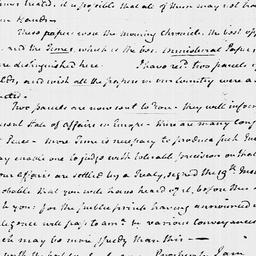 it is possible that all of them may not have
your Hands —
These papers were the morning Chronicle, the best opp
and the Times, which is the best ministerial Paper
are distinguished here. I have recd. two parcels of
and wish all the papers in our Country were a
Two parcels are now sent to You — they will inform
State of affairs in Europe — there are many con
Peace — more Time is necessary to produce such Eve
enable one to judge with tolerable precision on that
affairs are settled by a Treaty, signed the 19th Inst
probable that you will have heard of it, before this
you: for the public prints having announced
will pass to am. by various conveyances
may be more speedy than this —
with the